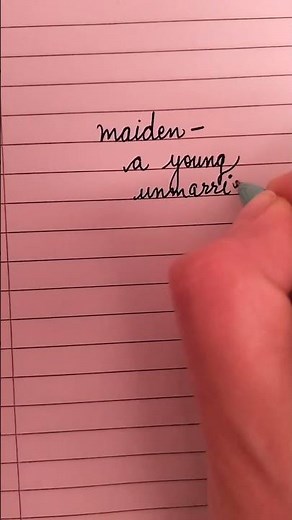 maiden –
a young
unmarri